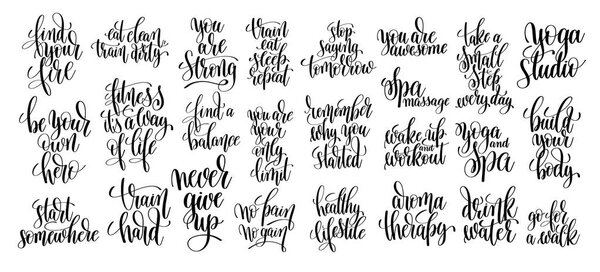 find
your
fire
eat clean
train dirty
you
are
strong
train
eat
sleep
repeat
stop
saying
tomorrow
you are
awesome
take a
small
step
every day
yoga
studio
be your
own
hero
fitness
it's a way
of life
find a
balance
you are
your
only
limit
remember
why you
started
spa
massage
wake up
and
workout
yoga
and
spa
build
your
body
start
somewhere
train
hard
never
give
up
no pain
no gain
healthy
lifestile
aroma
therapy
drink
water
go for
a walk